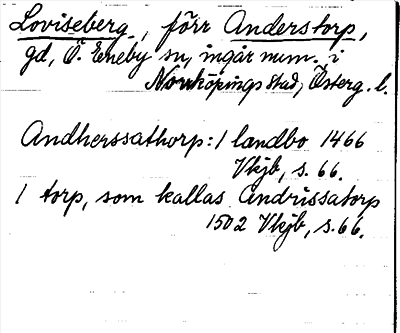 Loviseberg, förr Anderstorp,
gd, Ö. Eneby sn, ingår num. i
Norrköpings stad, Österg. l.
Andherssathorp: 1 landbo 1466
Vkjb, s. 66.
1 torp, som kallas Andrissatorp
1502 Vkjb, s. 66.